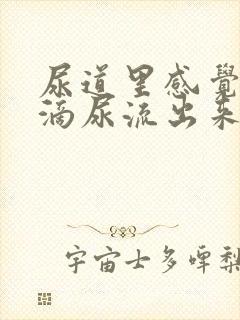 尿道里感覺
滴尿流出来
宇宙士多啤梨